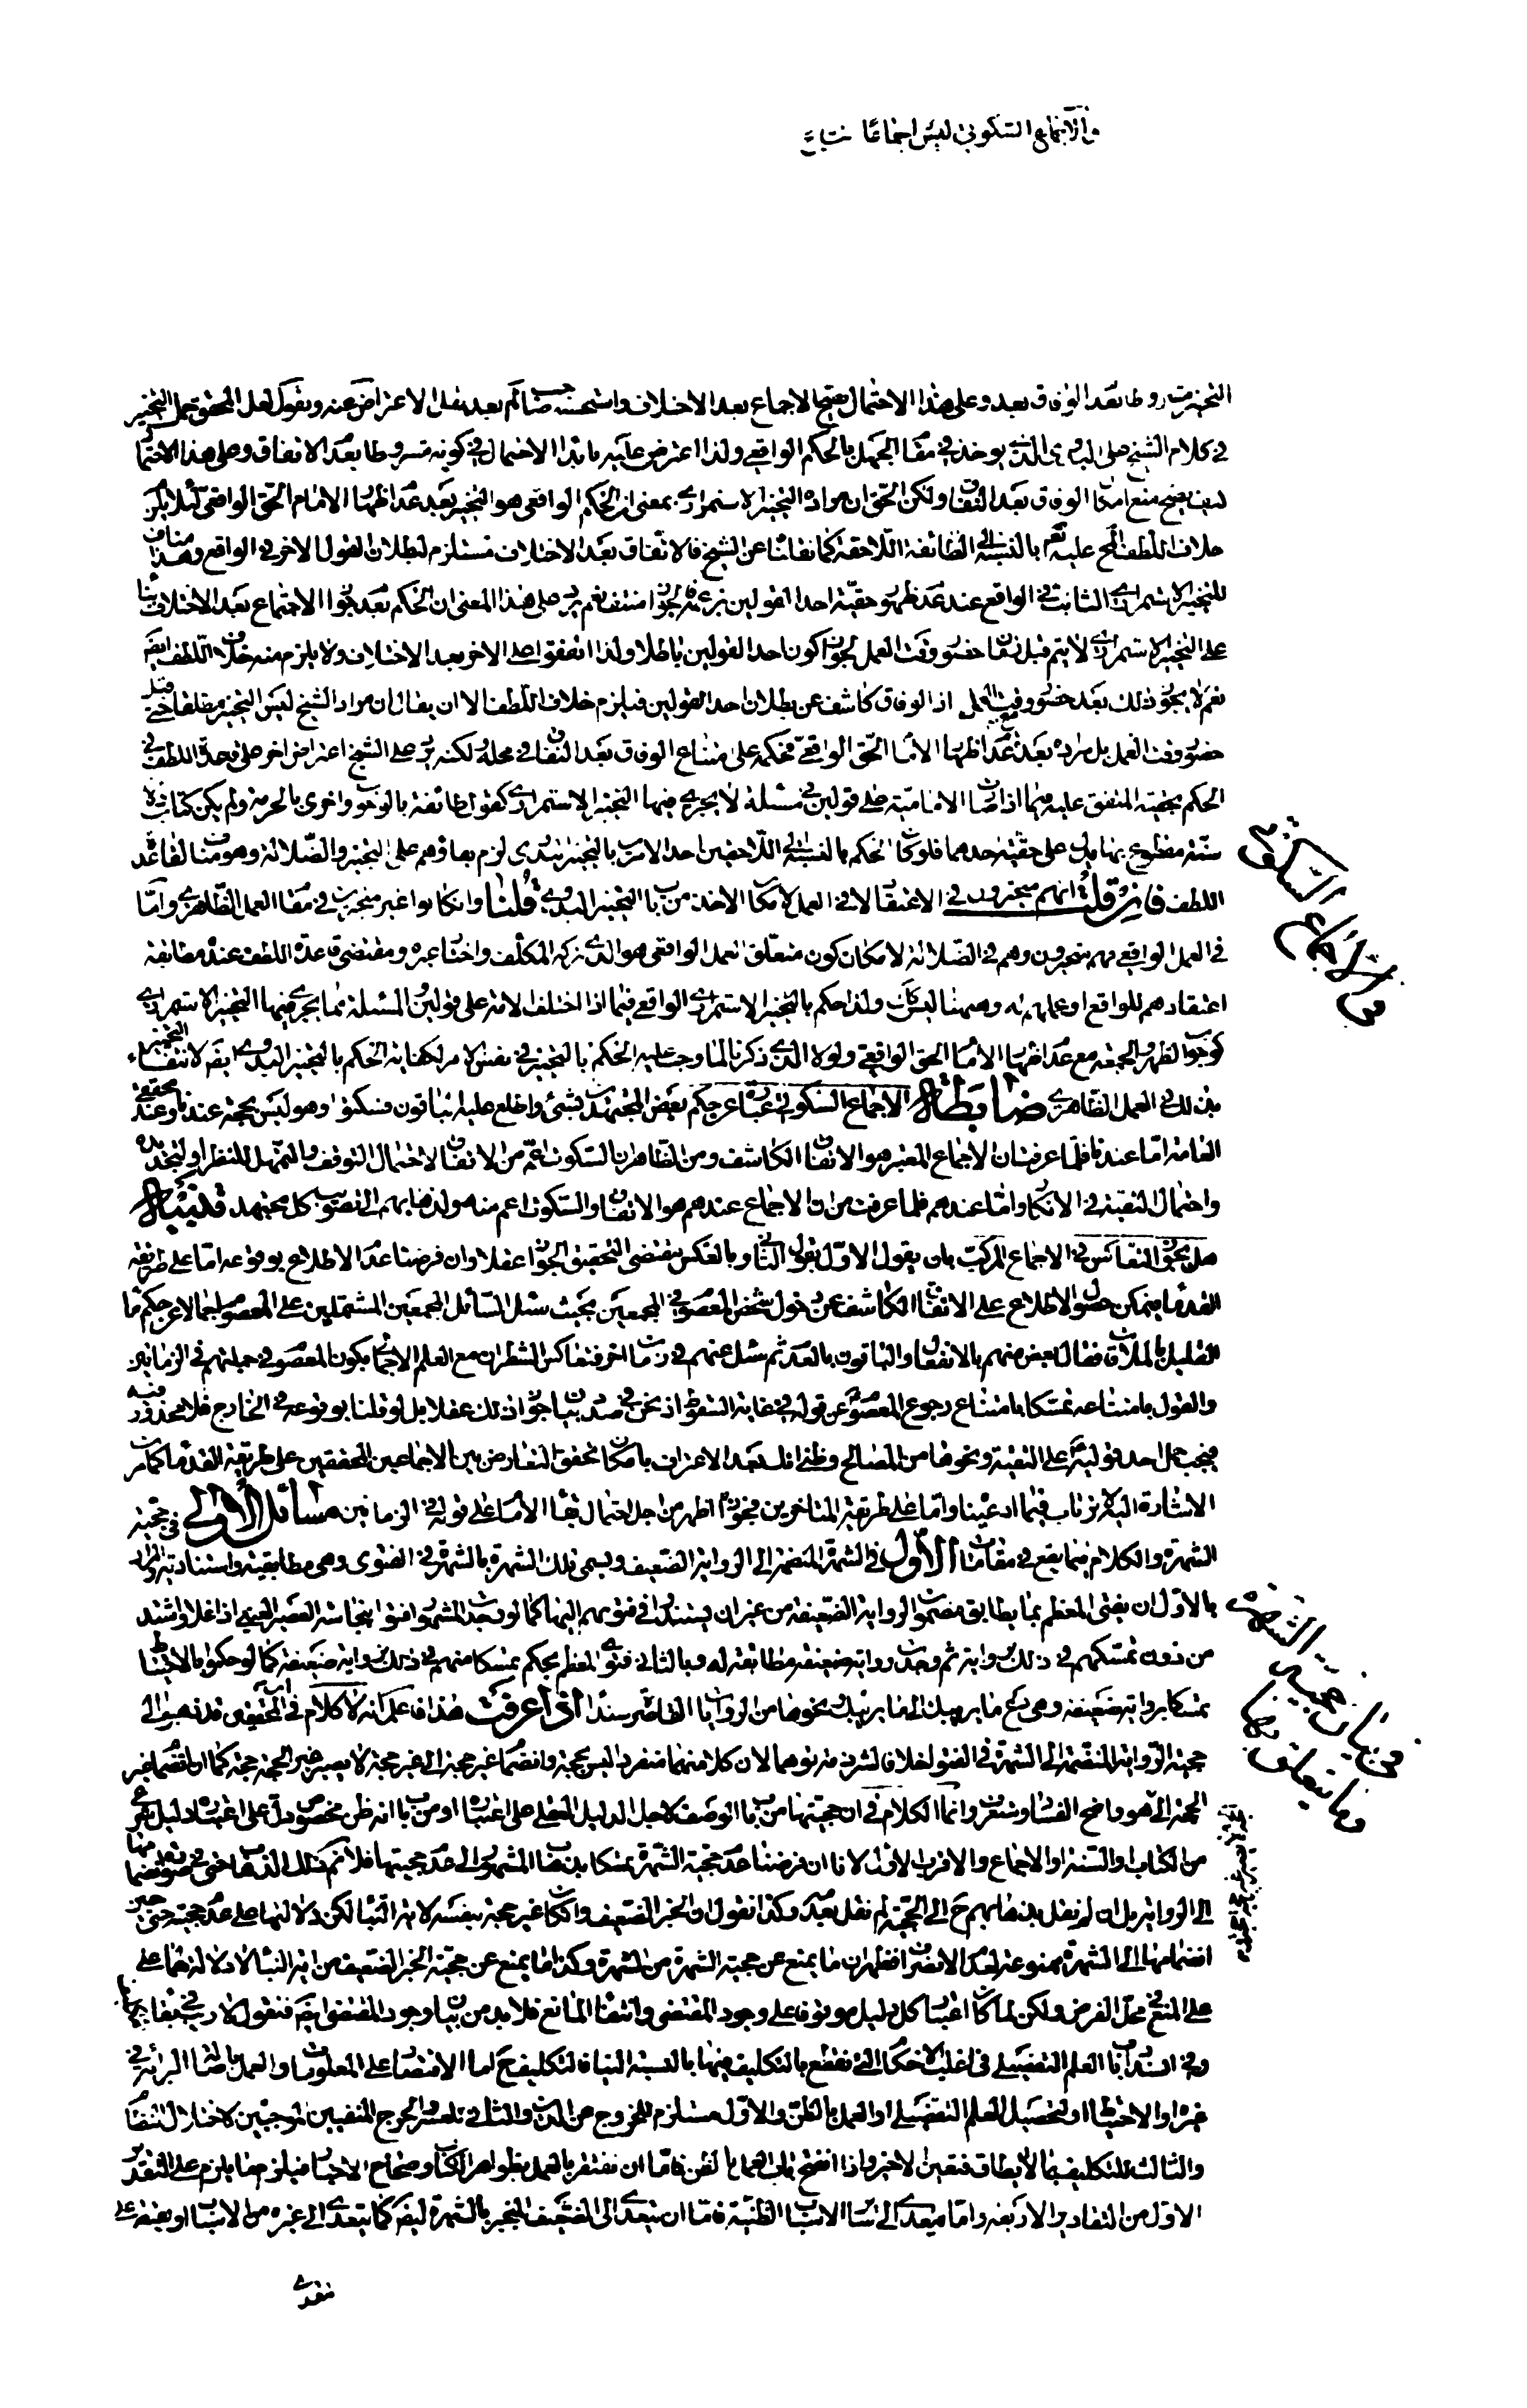 في الاجماع السكوتي ليس اجماعا
التخيير مشروطا بعد الوفاق بعد وعلى هذا الاحتمال يصح الاجماع بعد الاختلاف واستحسنه صاحب لم بعد نقل الاعتراض عنه ويقول لعل المحقق حمل التخيير
في كلام الشيخ على البدوي الذي يوخذ في مقام الجهل بالحكم الواقعي ولذا اعترض عليه بابداء الاحتمال في كونه مشروطا بعدم الاتفاق وعلى هذا الاحتمال
يصح منع امكان الوفاق بعد النفاق ولكن الحق ان مراده التخيير الاستمراري بمعنى ان الحكم الواقعي هو التخيير بعد عدم اظهار الامام الحق الواقعي لئلا يلزم
خلاف اللطف عليه تعم بالنسبة الى الطائفة اللاحقة كما نقلنا عن الشيخ فالاتفاق بعد الاختلاف مستلزم لبطلان القول الاخر في الواقع وهذا مناف
للتخيير الاستمراري الثابت في الواقع عند عدم ظهور حقية احد القولين منتف نعم يرد على هذا المعنى ان الحكم بعد جواز الاجتماع بعد الاختلاف بناء
على التخيير الاستمراري لا يتم قبل زمان حضور وقت العمل لجواز كون احد القولين باطلا ولذا اتفقوا على الاخر بعد الاختلاف ولا يلزم منه خلاف اللطف ايضا
نعم لا يجوز ذلك بعد حضور وقت العمل اذ الوفاق كاشف عن بطلان احد القولين فيلزم خلاف اللطف الا ان يقال ان مراد الشيخ ليس التخيير مطلقا حتى قبل
حضور وقت العمل بل مراده بعده مع عدم اظهار الامام الحق الواقعي فحكمه على امتناع الوفاق بعد النفاق في محله لكنه يرد على الشيخ اعتراض اخر على قاعدة اللطف في
الحكم بحقية المتفق عليه فيما اذا كان الامامية على قولين في مسئلة لا يجري فيها التخيير الاستمراري كقول طائفة بالوجوب واخرى بالحرمة ولم يكن كتاب ولا
سنة مقطوع بها يدل على حقية احدهما فلو كان الحكم بالنسبة الى اللاحقين احد الامرين بالتخيير البدوي لزم بقاؤهم على التخيير والضلالة وهو مناف لقاعدة
اللطف فان قلت انهم متحيرون في الاعتقاد لا في العمل لامكان الاخذ من باب التخيير البدوي قلنا وان كانوا غير متحيرين في مقام العمل الظاهري واما
في العمل الواقعي فهم متحيرون وهم في الضلالة لامكان كون متعلق العمل الواقعي هو الذي تركه المكلف واختار غيره ومقتضى قاعدة اللطف عنده مطابقة
اعتقادهم للواقع او عملهم له وههنا ليس كان ولذا حكم بالتخيير الاستمراري الواقعي فيما اذا اختلف الامة على قولين والمسئلة مما يجري فيها التخيير الاستمراري
كوجوب الظهر والجمعة مع عدم اظهار الامام الحق الواقعي ولولا الذي ذكرنا لما وجب عليه الحكم بالتخيير في نفس الامر لكفاية الحكم بالتخيير البدوي ايضا لانتفاء التخيير
بذلك في العمل الظاهري ضابطة الاجماع السكوتي عبارة عن حكم بعض المجتهدين بشئ واطلع عليه الباقون فسكتوا وهو ليس بحجة عندنا وعند محققي
العامة اما عندنا فلما عرفت ان الاجماع المعتبر هو الاتفاق الكاشف ومن الظاهر ان السكوت اعم من الاتفاق لاحتمال التوقف والتمهل للنظر او لتجديده
واحتمال التقية في الانكار واما عندهم فلما عرفت من ان الاجماع عندهم هو الاتفاق والسكوت اعم منه ولذهابهم الى تصويب كل مجتهد تذنيب
هل يجوز التعاكس في الاجماع المركب بان يقول الاول بقول الثاني وبالعكس مقتضى التحقيق الجواز عقلا وان فرضنا عدم الاطلاع بوقوعه اما على طريقة
القدماء فيمكن حصول الاطلاع على الاتفاق الكاشف عن دخول شخص المعصوم في المجمعين بحيث سئل السائل المجمعين المشتملين على المعصوم اجمالا عن حكم ماء
القليل بالملاقاة فقال بعض منهم بالانفعال والباقون بالعدم ثم سئل عنهم في زمان اخر فتعاكس الشطران مع العلم الاجمالي بكون المعصوم في جملتهم في الزمانين
والقول بامتناعه تمسكا بامتناع رجوع المعصوم عن قوله في غاية السقوط اذ نحن في صدد بيان جواز ذلك عقلا بل لو قلنا بوقوعه في الخارج فلا محذور فيه
فيجب حمل احد قوليه على التقية ونحوها من المصالح وظني انك بعد الاعتراف بامكان تحقق التعارض بين الاجماعين المحققين على طريقة القدماء كما مر
الاشارة اليه لا ترتاب فيما ادعيناه واما على طريقة المتاخرين فجوازه اظهر من اجل احتمال بقاء الامام على قوله في الزمانين مسائل الاولى في حجية
الشهرة والكلام فيها يقع في مقامات الاول في الشهرة المنضمة الى الرواية الضعيفة ويسمى ذلك الشهرة بالشهرة في الفتوى وهي مطابقية واستنادية والمراد
بالاول ان يفتي المعظم بما يطابق مضمون الرواية الضعيفة من غير ان يستندوا في فتويهم اليها كما لو وجد المشهور افتوا بنجاسة العصير العنبي اذا غلا واشتد
من دون تمسكهم في ذلك برواية ثم وجدت رواية ضعيفة مطابقة له وبالثاني فتوى المعظم بحكم تمسكا منهم في ذلك برواية ضعيفة كما لو حكموا بالاحتياط
تمسكا برواية ضعيفة وهي دع ما يريبك الى ما لا يريبك ونحوها من الروايات القاصرة سندا اذا عرفت هذا فاعلم انه لا كلام في ان المحققين قد ذهبوا الى
حجية الرواية المنضمة الى الشهرة في الفتوى خلافا لشرذمة توهما لان كلا منهما منفردا ليس بحجة وانضمام غير حجة الى غير حجة لا يصير غير الحجة حجة كما ان انضمام غير
الحجة الى وهو واضح الفساد وستعرف وانما الكلام في ان حجيتها من باب الوصف لاجل الدليل العقلي على اعتباره او من باب انه ظن مخصوص دل على اعتباره دليل شرعي
من الكتاب والسنة او الاجماع والاقرب الاول لانا ان فرضنا عدم حجية الشهرة تمسكا بذهاب المشهور الى عدم حجيتها فلا نم ذلك الذهاب حتى في صورة انضمامها
الى الرواية بل ان لم نقل بذهابهم ح الى الحجية لم نقل بعدمه وكذا نقول ان الخبر الضعيف وان كان غير حجة بنفسه لاية النبأ لكن دلالتها على عدم حجيته حتى حين
انضمامها الى الشهرة ممنوعة لعدم الانصراف فظهر ان ما يمنع عن حجية الشهرة من الشهرة وكذا ما يمنع عن حجية الخبر الضعيف من اية النبأ لا دلالة لهما على
على المنع في محل الفرض ولكن لما كان اعتبار كل دليل موقوفا على وجود المقتضي وانتفاء المانع فلا بد من بيان وجود المقتضي ايضا فنقول لا ريب في بقاء
وفي انسداد باب العلم التفصيلي في اغلب الاحكام التي نقطع بالتكليف فيها بالنسبة الينا فالتكليف ح اما الاقتصار على المعلومات والعمل باصالة البرائة في
غيرها والاحتياط او تحصيل العلم التفصيلي او العمل بالظن والاول مستلزم للخروج من الدين والثاني للعسر والحرج المنفيين الموجبين لاختلال النظام
والثالث للتكليف بما لا يطاق فتعين الاخير واذا انفتح باب العمل بالظن فاما ان نقتصر بالعمل بظواهر الكتاب وصحاح الاخبار فيلزم ما يلزم على التقدير
الاول من التقادير الاربعة واما نتعدى الى سائر الاسباب الظنية فاما ان نتعدى الى الضعيف المنجبر بالشهرة ايضا كما نتعدى الى غيره من الاسباب او نقتصر على
في الاجماع السكوتي
في بيان حجية الشهرة
وما يتعلق بها